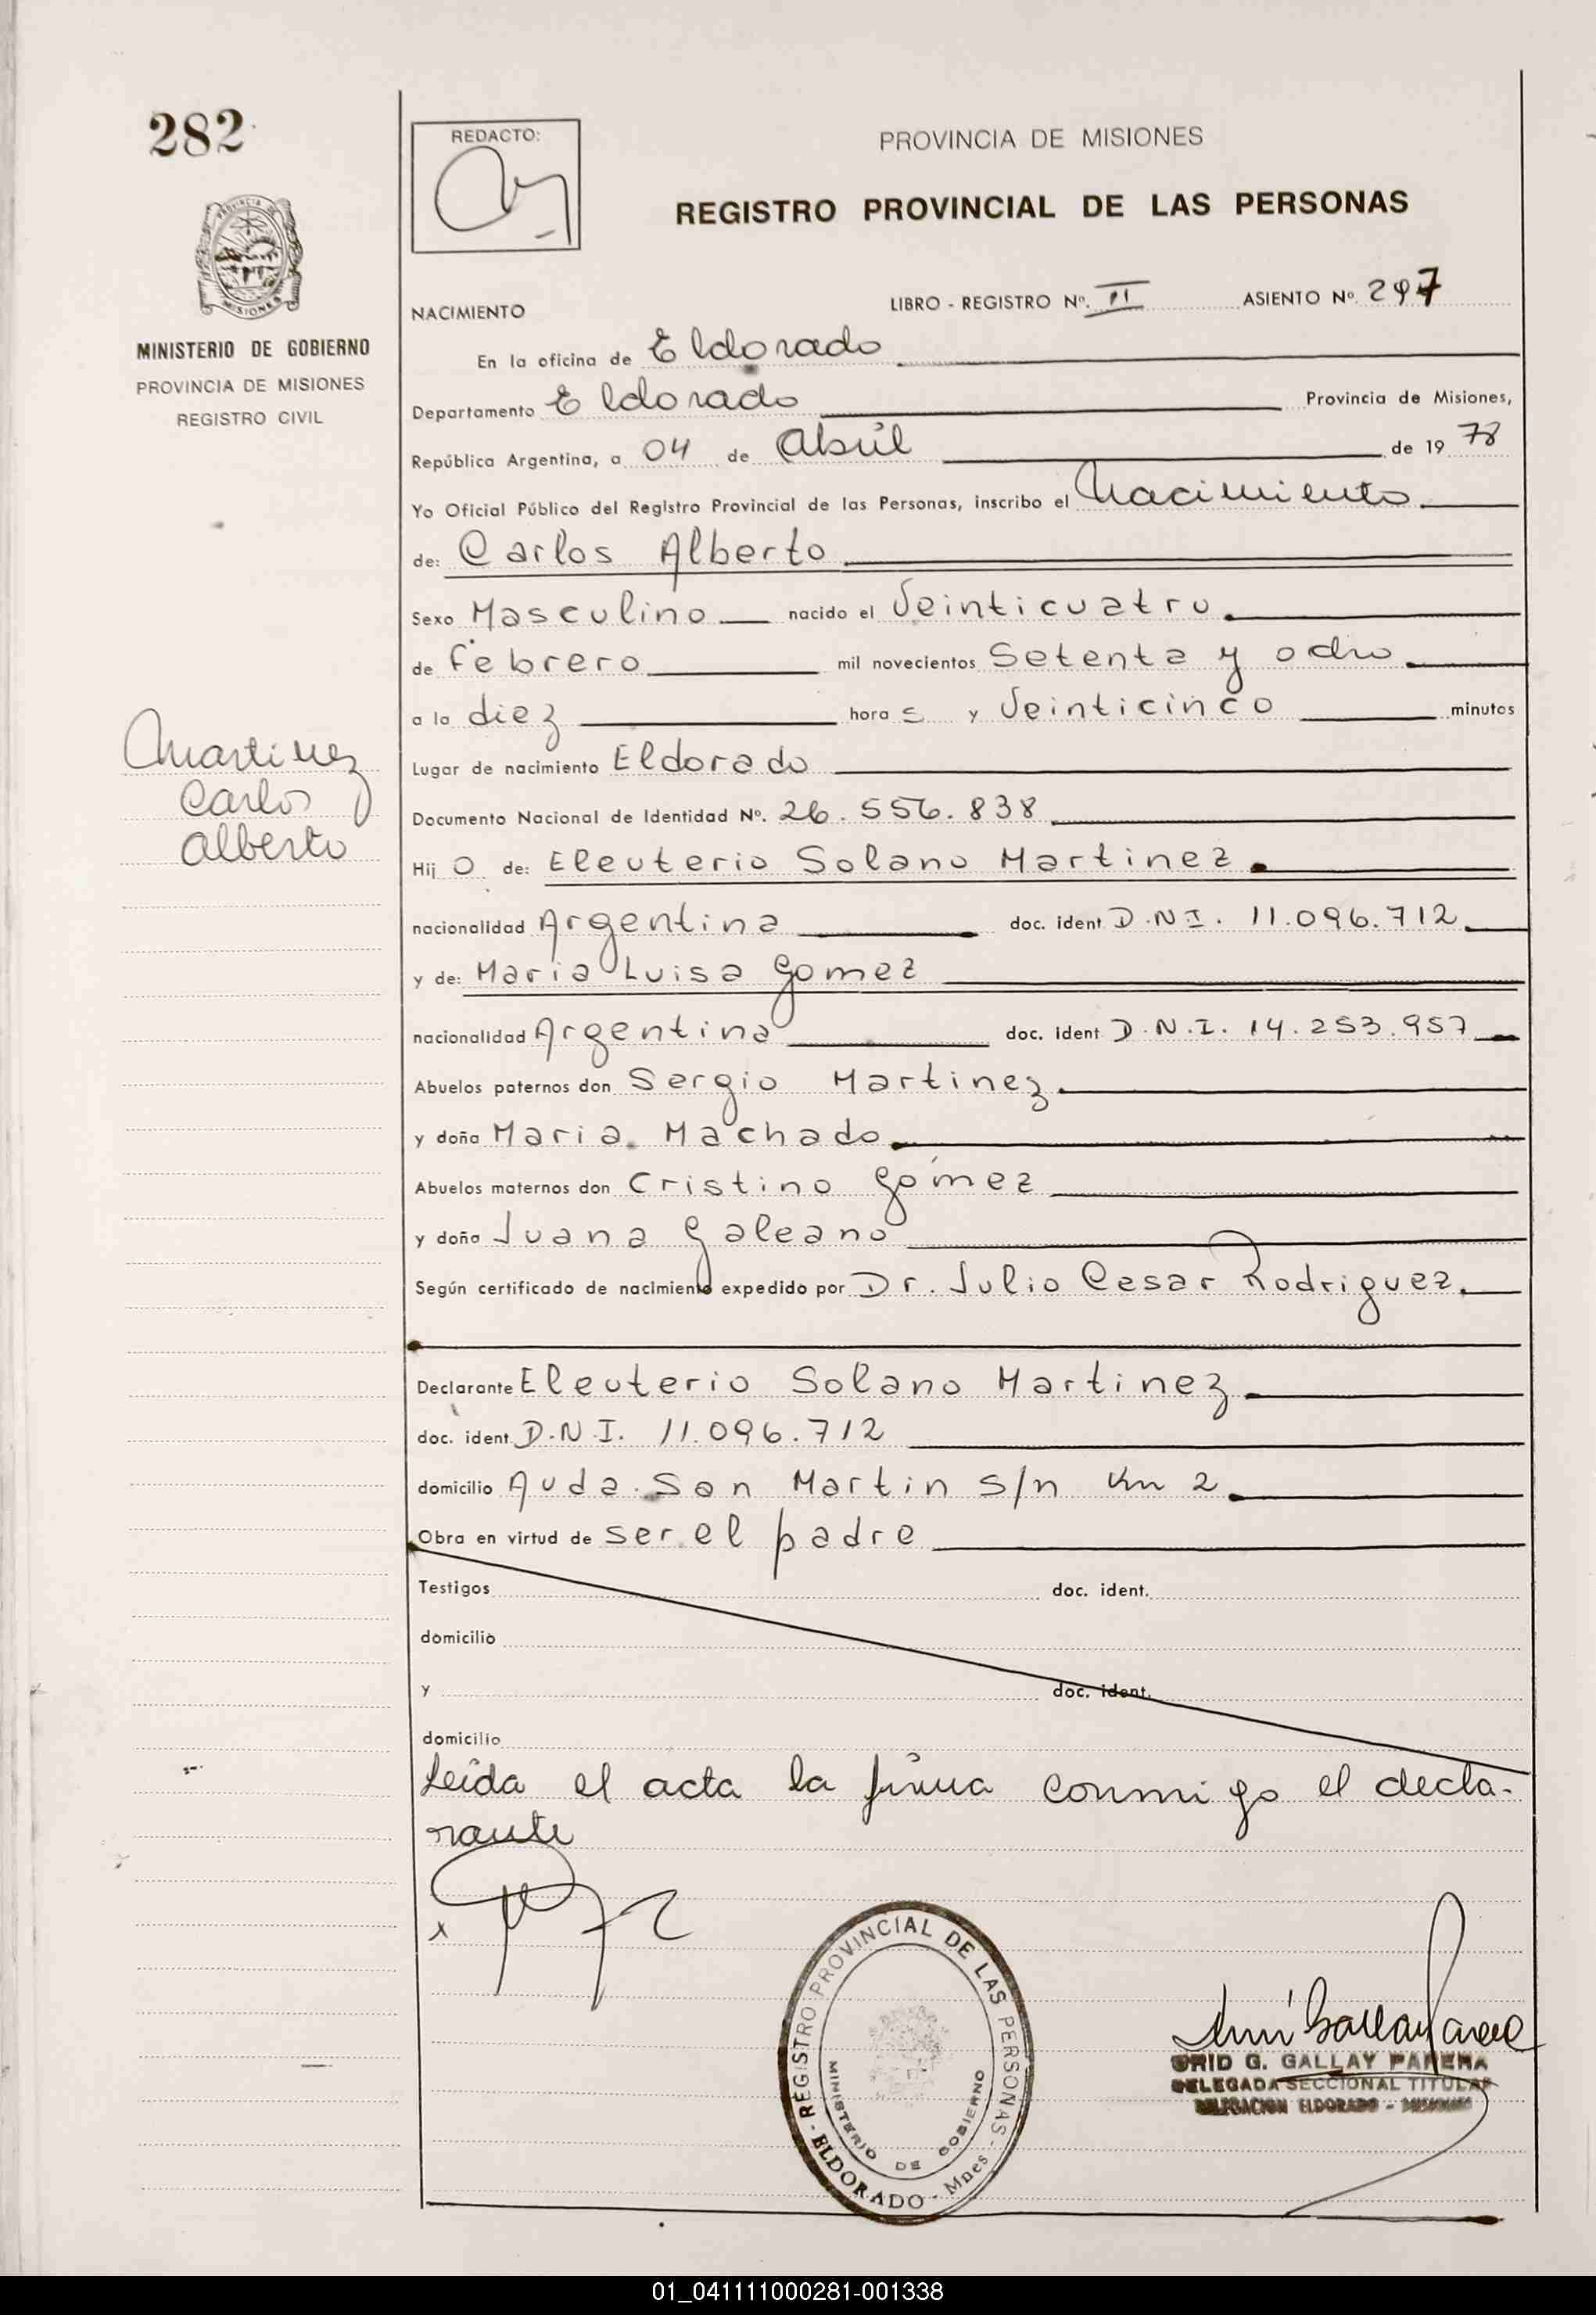 282
REDACTO:
PROVINCIA DE MISIONES
REGISTRO PROVINCIAL DE LAS PERSONAS
PROVINCIA DE
MISIONES
MINISTERIO DE GOBIERNO
PROVINCIA DE MISIONES
REGISTRO CIVIL
NACIMIENTO LIBRO - REGISTRO Nº. II ASIENTO Nº 297
En la oficina de Eldorado
Departamento Eldorado Provincia de Misiones,
República Argentina, a 04 de Abril de 19 78
Yo Oficial Público del Registro Provincial de las Personas, inscribo el Nacimiento
de: Carlos Alberto
Sexo Masculino nacido el Veinticuatro
de Febrero mil novecientos Setenta y ocho
a la diez hora s y Veinticinco minutos
Martinez
Carlos
Alberto
Lugar de nacimiento Eldorado
Documento Nacional de Identidad Nº. 26.556.838
Hij o de: Eleuterio Solano Martinez.
nacionalidad Argentina doc. ident D.N.I. 11.096.712
y de: Maria Luisa Gomez
nacionalidad Argentina doc. ident D.N.I. 14.253.957
Abuelos paternos don Sergio Martinez
y doña Maria Machado
Abuelos maternos don Cristino Gómez
y doña Juana Galeano
Según certificado de nacimiento expedido por Dr. Julio Cesar Rodriguez.
Declarante Eleuterio Solano Martinez
doc. ident. D.N.I. 11.096.712
domicilio Avda. San Martin s/n Km 2
Obra en virtud de ser el padre
Testigos doc. ident.
domicilio
y doc. ident.
domicilio
Leída el acta la firma conmigo el decla-
rante
x
REGISTRO PROVINCIAL DE LAS PERSONAS - ELDORADO - Mnes
MINISTERIO DE GOBIERNO
G. GALLAY PARERA
DELEGADA SECCIONAL TITULAR
DELEGACION ELDORADO - MISIONES
01_041111000281-001338